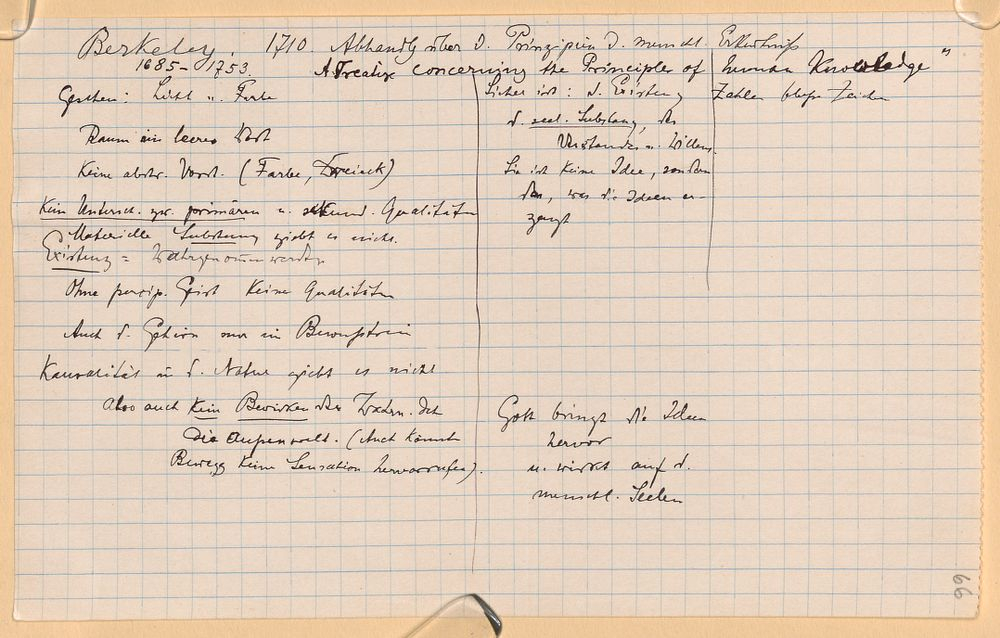 Berkeley. 1710. Abhandlg über d. Prinzipien d. menschl. Erkenntniß
1685–1753. A Treatise concerning the Principles of human Knowledge"
Gesehen: Licht u. Farbe
Raum ein leeres Wort
Keine abstr. Vorst. (Farbe, Dreieck)
Kein Untersch. zw. primären u. sekund. Qualitäten
Materielle Substanz giebt es nicht.
Existenz = Wahrgenommenwerden
Ohne percip. Geist keine Qualitäten
Auch d. Gehirn nur im Bewußtsein
Kausalität in d. Natur giebt es nicht
Also auch kein Bewirken der Wahrn. dch
die Außenwelt. (Auch könnte
Bewegg keine Sensation hervorrufen).
Sicher ist: d. Existenz
d. seel. Substanz, des
Verstandes u. Willens.
Sie ist keine Idee, sondern
das, was die Ideen er-
zeugt
Gott bringt die Ideen
hervor
u. wirkt auf d.
menschl. Seelen
Zahlen bloße Zeichen
66